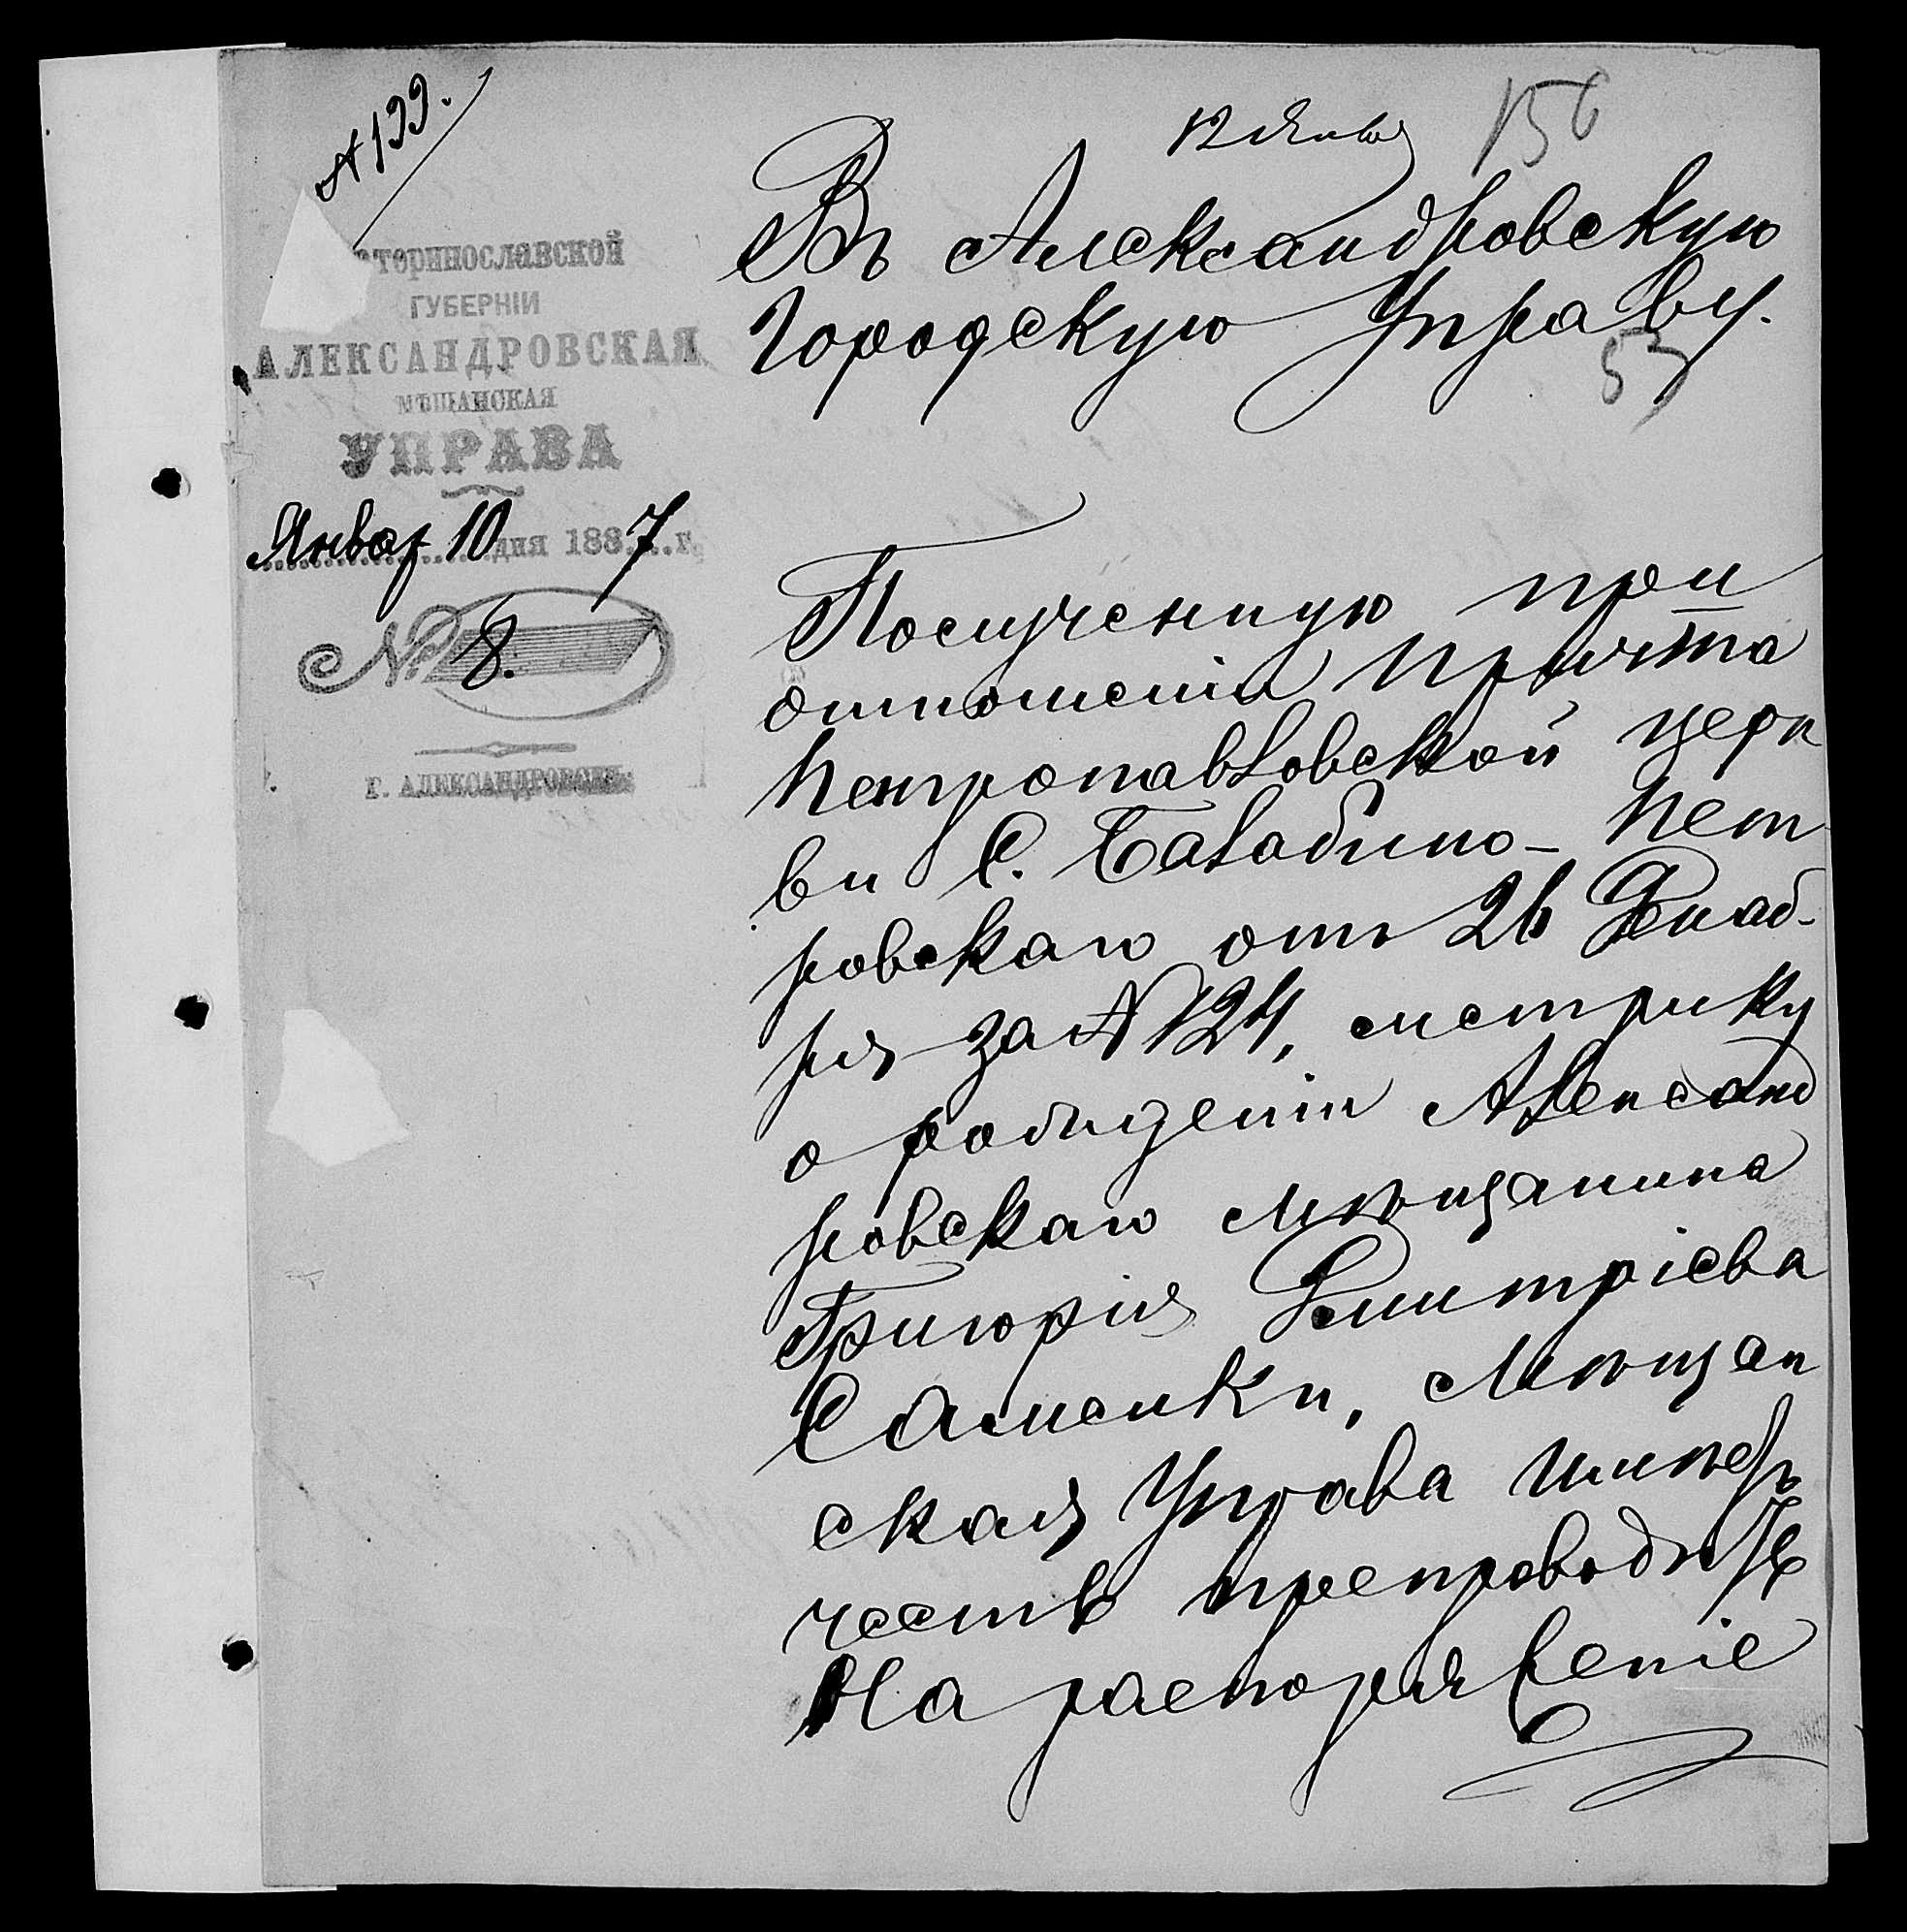 № 199.
12 Января
156
Въ Александровскую
Городскую Управу.
53
теринославской
ГУБЕРНІИ
АЛЕКСАНДРОВСКАЯ
МѢЩАНСКАЯ
УПРАВА
Январ 10 дня 1887 г.
№ 8.
г. АЛЕКСАНДРОВСКЪ
Полученную при
отношеніи причта
Петропавловской церк
ви С. Балабино-Пет
ровскаго отъ 26 Декаб-
ря за № 124, метрику
о рожденіи Александ
ровскаго мѣщанина
Григорія Дмитріева
Саменки, Мѣщан
ская Управа имѣетъ
честь препроводить
На распоряженіе